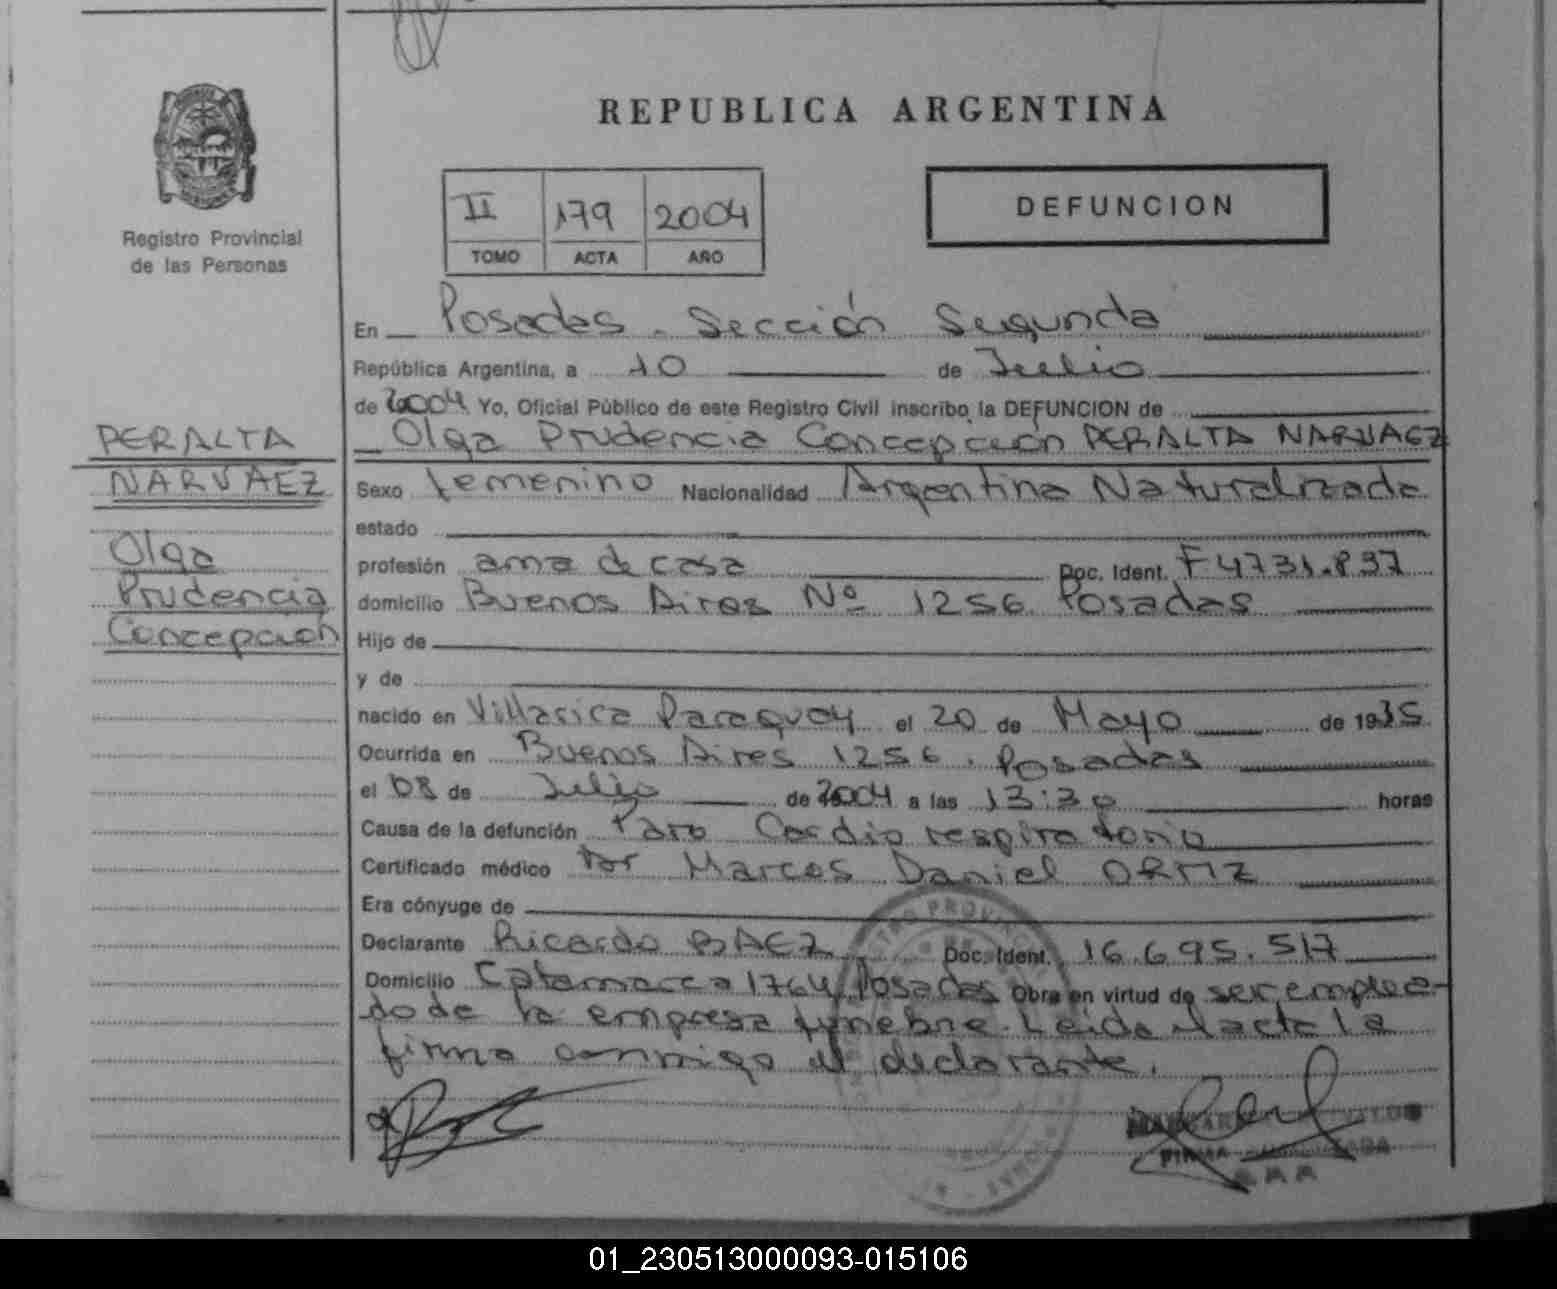 REPUBLICA ARGENTINA
Registro Provincial
de las Personas
II 179 2004
TOMO ACTA AÑO
DEFUNCION
PERALTA
NARVAEZ
Olga
Prudencia
Concepción
En Posadas. Sección Segunda
República Argentina, a 10 de Julio
de 2004 Yo, Oficial Público de este Registro Civil inscribo la DEFUNCION de
Olga Prudencia Concepción PERALTA NARVAEZ
Sexo femenino Nacionalidad Argentina Naturalizada
estado
profesión ama de casa Doc. Ident. F 4731.897
domicilio Buenos Aires Nº 1256 Posadas
Hijo de
y de
nacido en Villarica Paraguay el 20 de Mayo de 1935
Ocurrida en Buenos Aires 1256. Posadas
el 08 de Julio de 2004 a las 13:30 horas
Causa de la defunción Paro Cardio respiratorio
Certificado médico por Marcos Daniel ORTIZ
Era cónyuge de
Declarante Ricardo BAEZ Doc. Ident. 16.695.517
Domicilio Catamarca 1764 Posadas Obra en virtud de ser emplea-
do de la empresa fúnebre. Leida el acta la
firma conmigo el declarante.
FIRMA
01_230513000093-015106